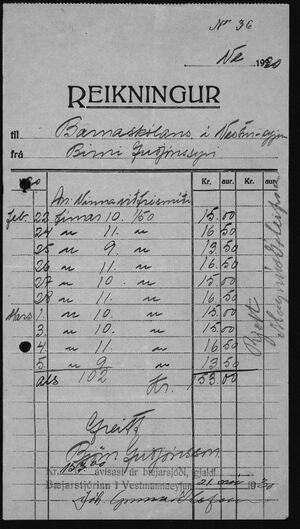 No 36
Ve 1930
REIKNINGUR
til Barnaskólans í Vestm.eyjum
frá Birni Guðjónssyni
Kr. aur. Kr. aur.
Ár. Vinna við
Feb. 22 Tímar 10. 1/50 15.00
24 " 11. " 16.50
25 " 9. " 13.50
26 " 11. " 16.50
27 " 10. " 15.00
28 " 11. " 16.50
Mars 1. " 10. " 15.00
3. " 10. " 15.00
4. " 11. " 16.50
5. " 9 " 13.50
als 102 Kr. 153.00
Rjett
Greitt
Björn Guðjónsson
Kr. 153.00 ávísast úr bæjarsjóði, gjaldl.
Bæjarstjórinn í Vestmannaeyjum, 21 1930
Jóh. Gunnar Ólafsson